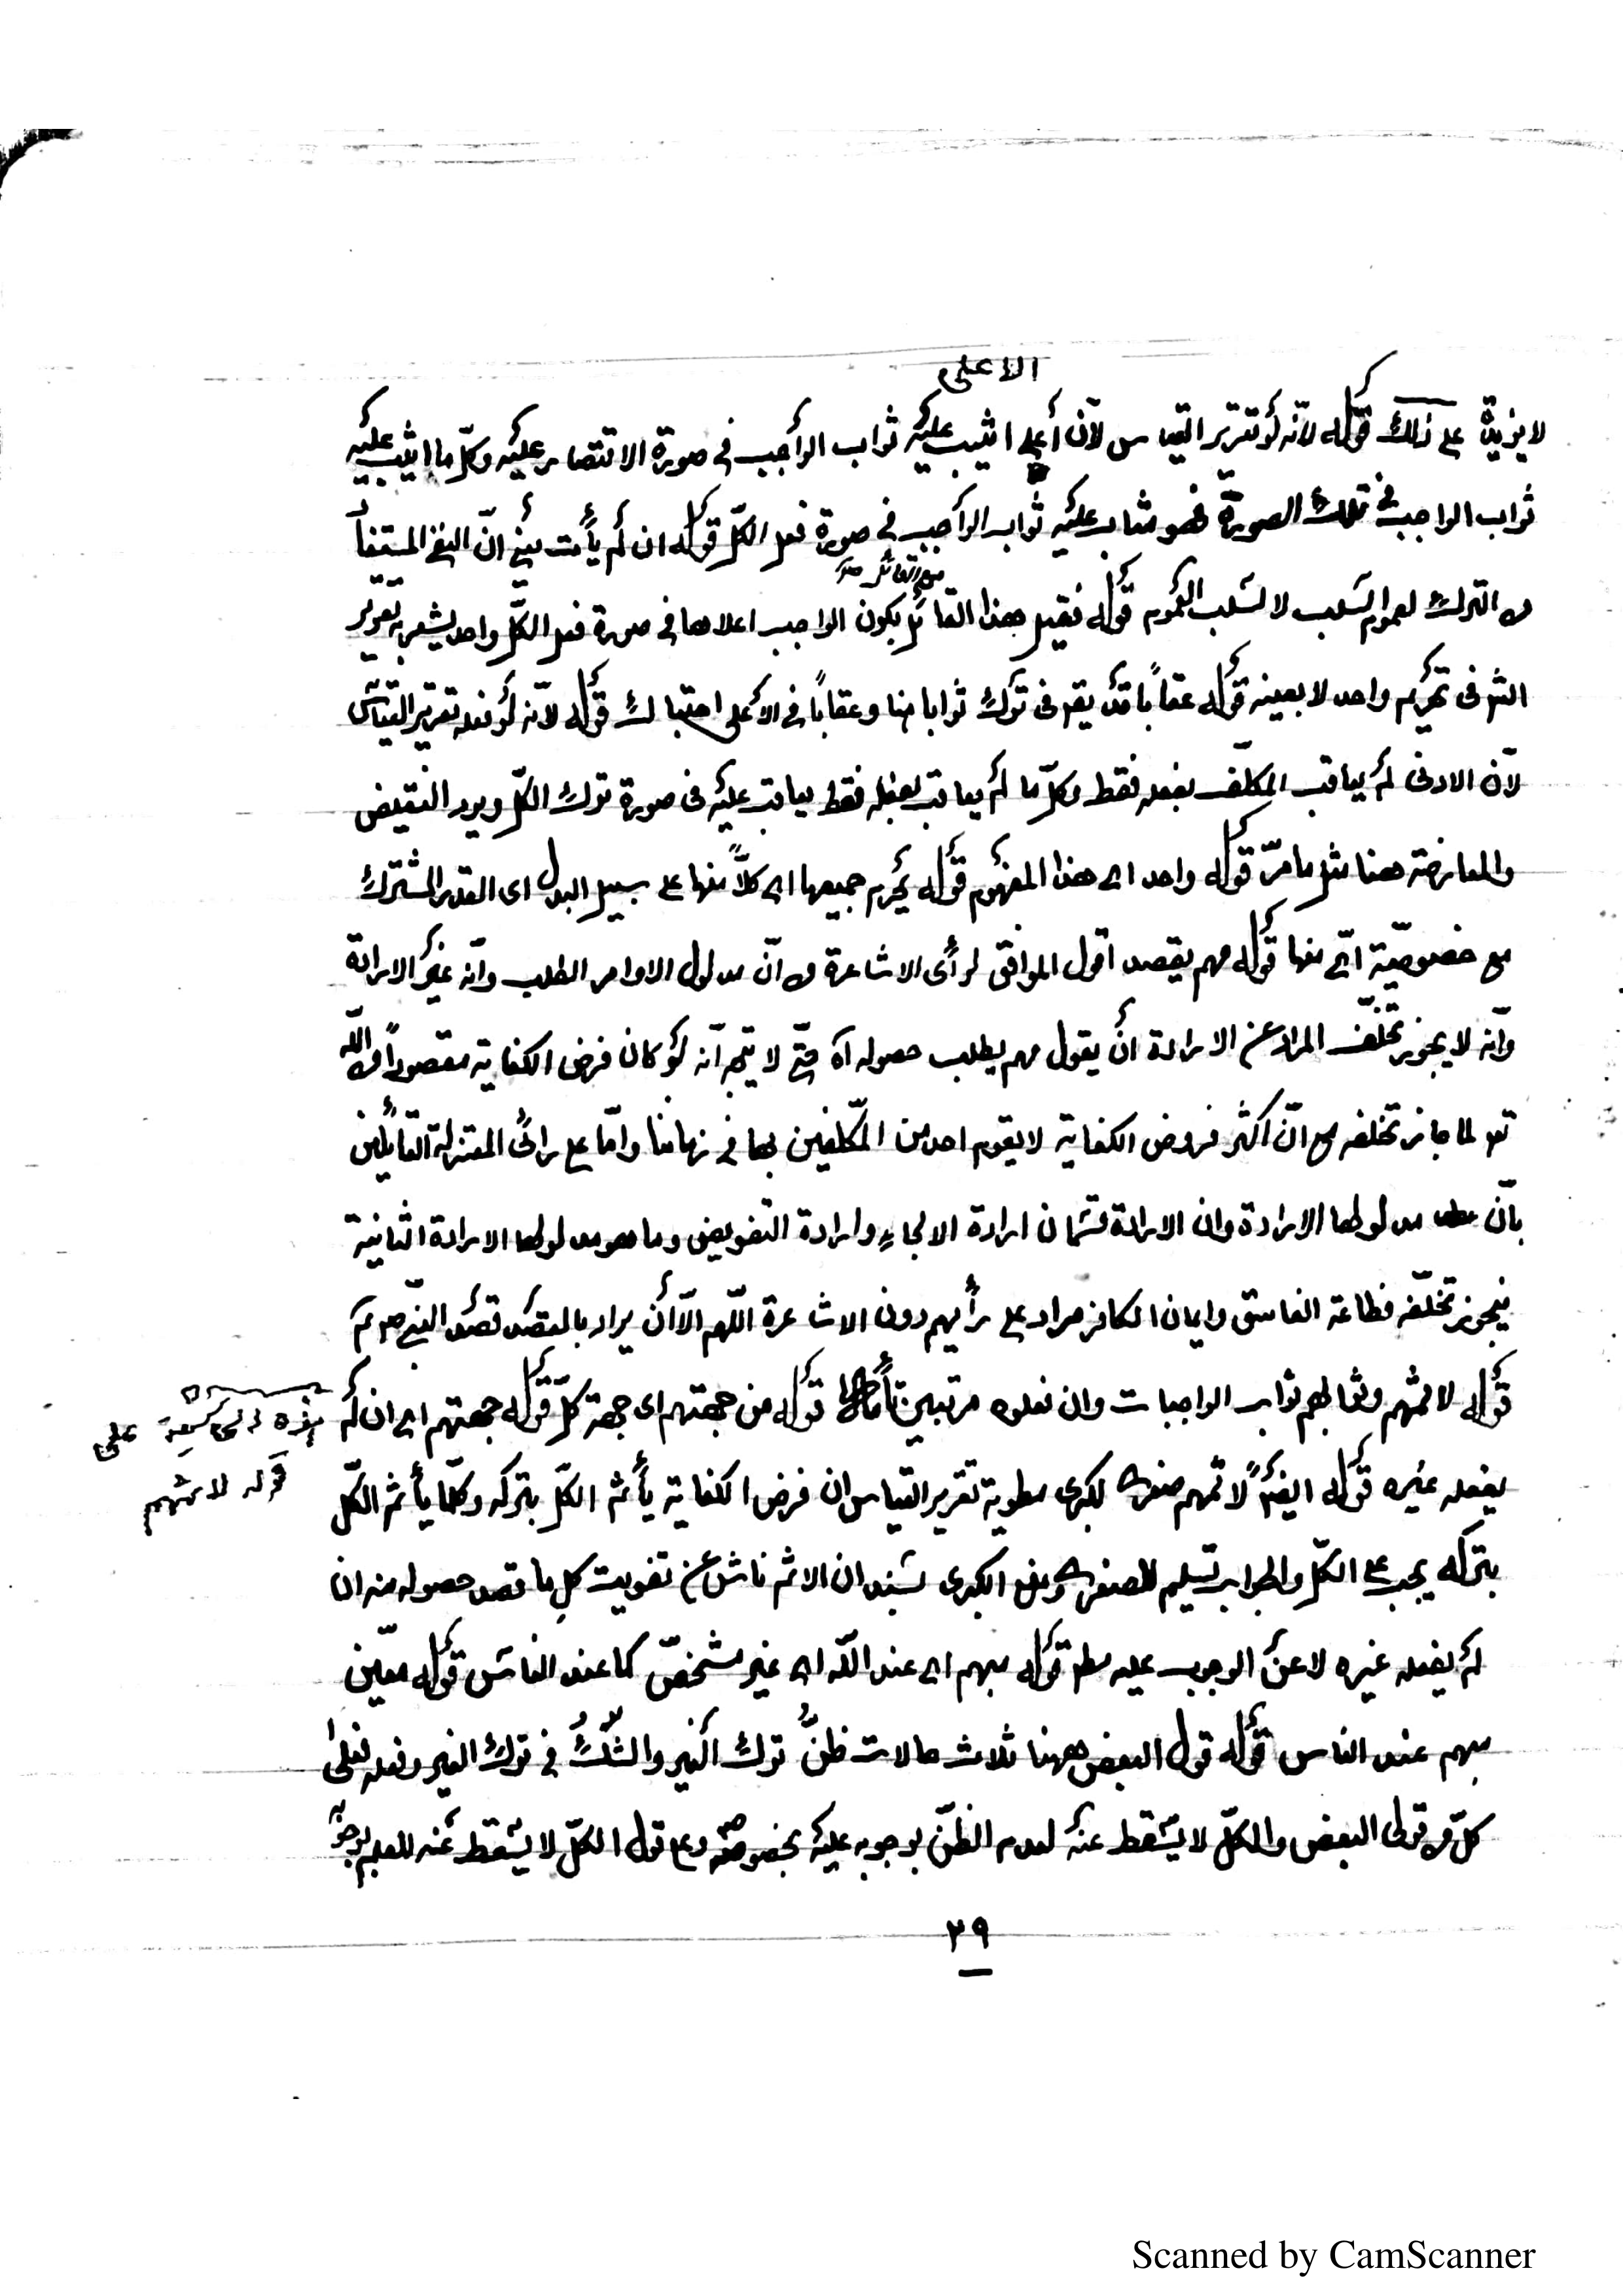 الاعلى
لا يزيد على ذلك قوله لانه لو تقرير القياس لان أعلى اثيب عليه ثواب الواجب في صورة الاقتصار عليه وكل ما اثيب عليه
ثواب الواجب في تلك الصورة فهو مثاب عليه ثواب الواجب في صورة فعل الكل قوله ان لم يأت يعني ان النفي المستفاد
من الترك لعموم السلب لا لسلب العموم قوله فقيل هذا القائل يكون الواجب اعلاها في صورة فعل الكل واحد يشعر به
في تحريم واحد لا بعينه قوله عقاباً قد يقع في ترك ثوابا منا وعقاباً في الاعلى احتباك قوله لانه لو فعله تقرير القياس
لان الادنى لم يعاقب المكلف بفعله فقط وكل ما لم يعاقب بفعله فقط يعاقب عليه في صورة ترك الكل ويرد النقيض
والمعارضة هنا مثل ما مرّ قوله واحد اي هذا المفهوم قوله يحرم جميعها اي كلاًّ منها على سبيل البدل اى القدر المشترك
مع خصوصية اي منها قوله مهم يقصد اقول الموافق لرأى الاشاعرة من انّ مدلول الاوامر الطلب وانه غير الارادة
وانه لا يجوز تخلّف المراد عن الارادة أن يقول مهم يطلب حصوله اه حتى لا يتجه انه لو كان فرض الكفاية مقصوداً من الله
تع لما جاز تخلفه مع انّ اكثر فروض الكفاية لا يقوم احد من المكلفين بها في زماننا وامّا على رائ المعتزلة القائلين
بانّ مدلولها الارادة وان الارادة قسمان ارادة الالجاء وارادة التفويض وما هو مدلولها الارادة الثانية
فيجوز تخلّفه فطاعة الفاسق وايمان الكافر مراد على رأيهم دون الاشاعرة اللهم الا أن يراد بالقصد قصد النبي صلعم
قوله لاثمهم وثمّا لهم ثواب الواجبات وان فعلوه مرتبين قوله من جهتهم اى جهة كلّ قوله جهتهم اي ان لم
هذه على
قوله لاثمهم
يفعله غيره قوله ايضاً لاثمهم صغرى لكبرى مطوية تقرير القياس ان فرض الكفاية يأثم الكل بتركه وكلما يأثم الكلّ
بتركه يجب على الكلّ والجواب تسليم الصغرى ومنع الكبرى بسند ان الاثم ناش عن تفويت كل ما قصد حصوله منه ان
لم يفعله غيره لا عن الوجوب عليه قوله مبهم اي عند الله اي غير مشخصّ كما عند الناس قوله معيّن
مبهم عند الناس قوله قول البعض ههنا ثلاث حالات ظنّ ترك الغير والشكّ في ترك الغير وفعله فعلى
كلّ من قولى البعض والكلّ لا يسقط عنه لعدم الظنّ بوجوبه عليه بخصوصه وعلى قول الكلّ لا يسقط عنه للعلم بوجوبه
٢٩
Scanned by CamScanner